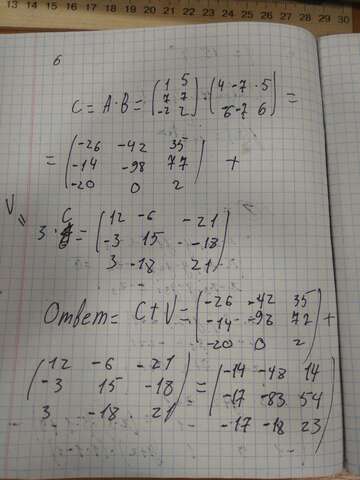 13 14 15 16 17 18 19 20 21 22 23 24 25 26 27 28 29 30
6
C = A·B = (1 5 (4 -7 ·5
7 7 · -6 -7 6) =
-2 2)
= (-26 -42 35
-14 -98 77) +
-20 0 2
V = 3 · C = (12 -6 -21
-3 15 -18)
3 -18 21
Ответ = C + V = (-26 -42 35
-14 -98 72) +
-20 0 2
(12 -6 -21 = (-14 -48 14
-3 15 -18) -17 -83 54)
3 -18 21 -17 -18 23